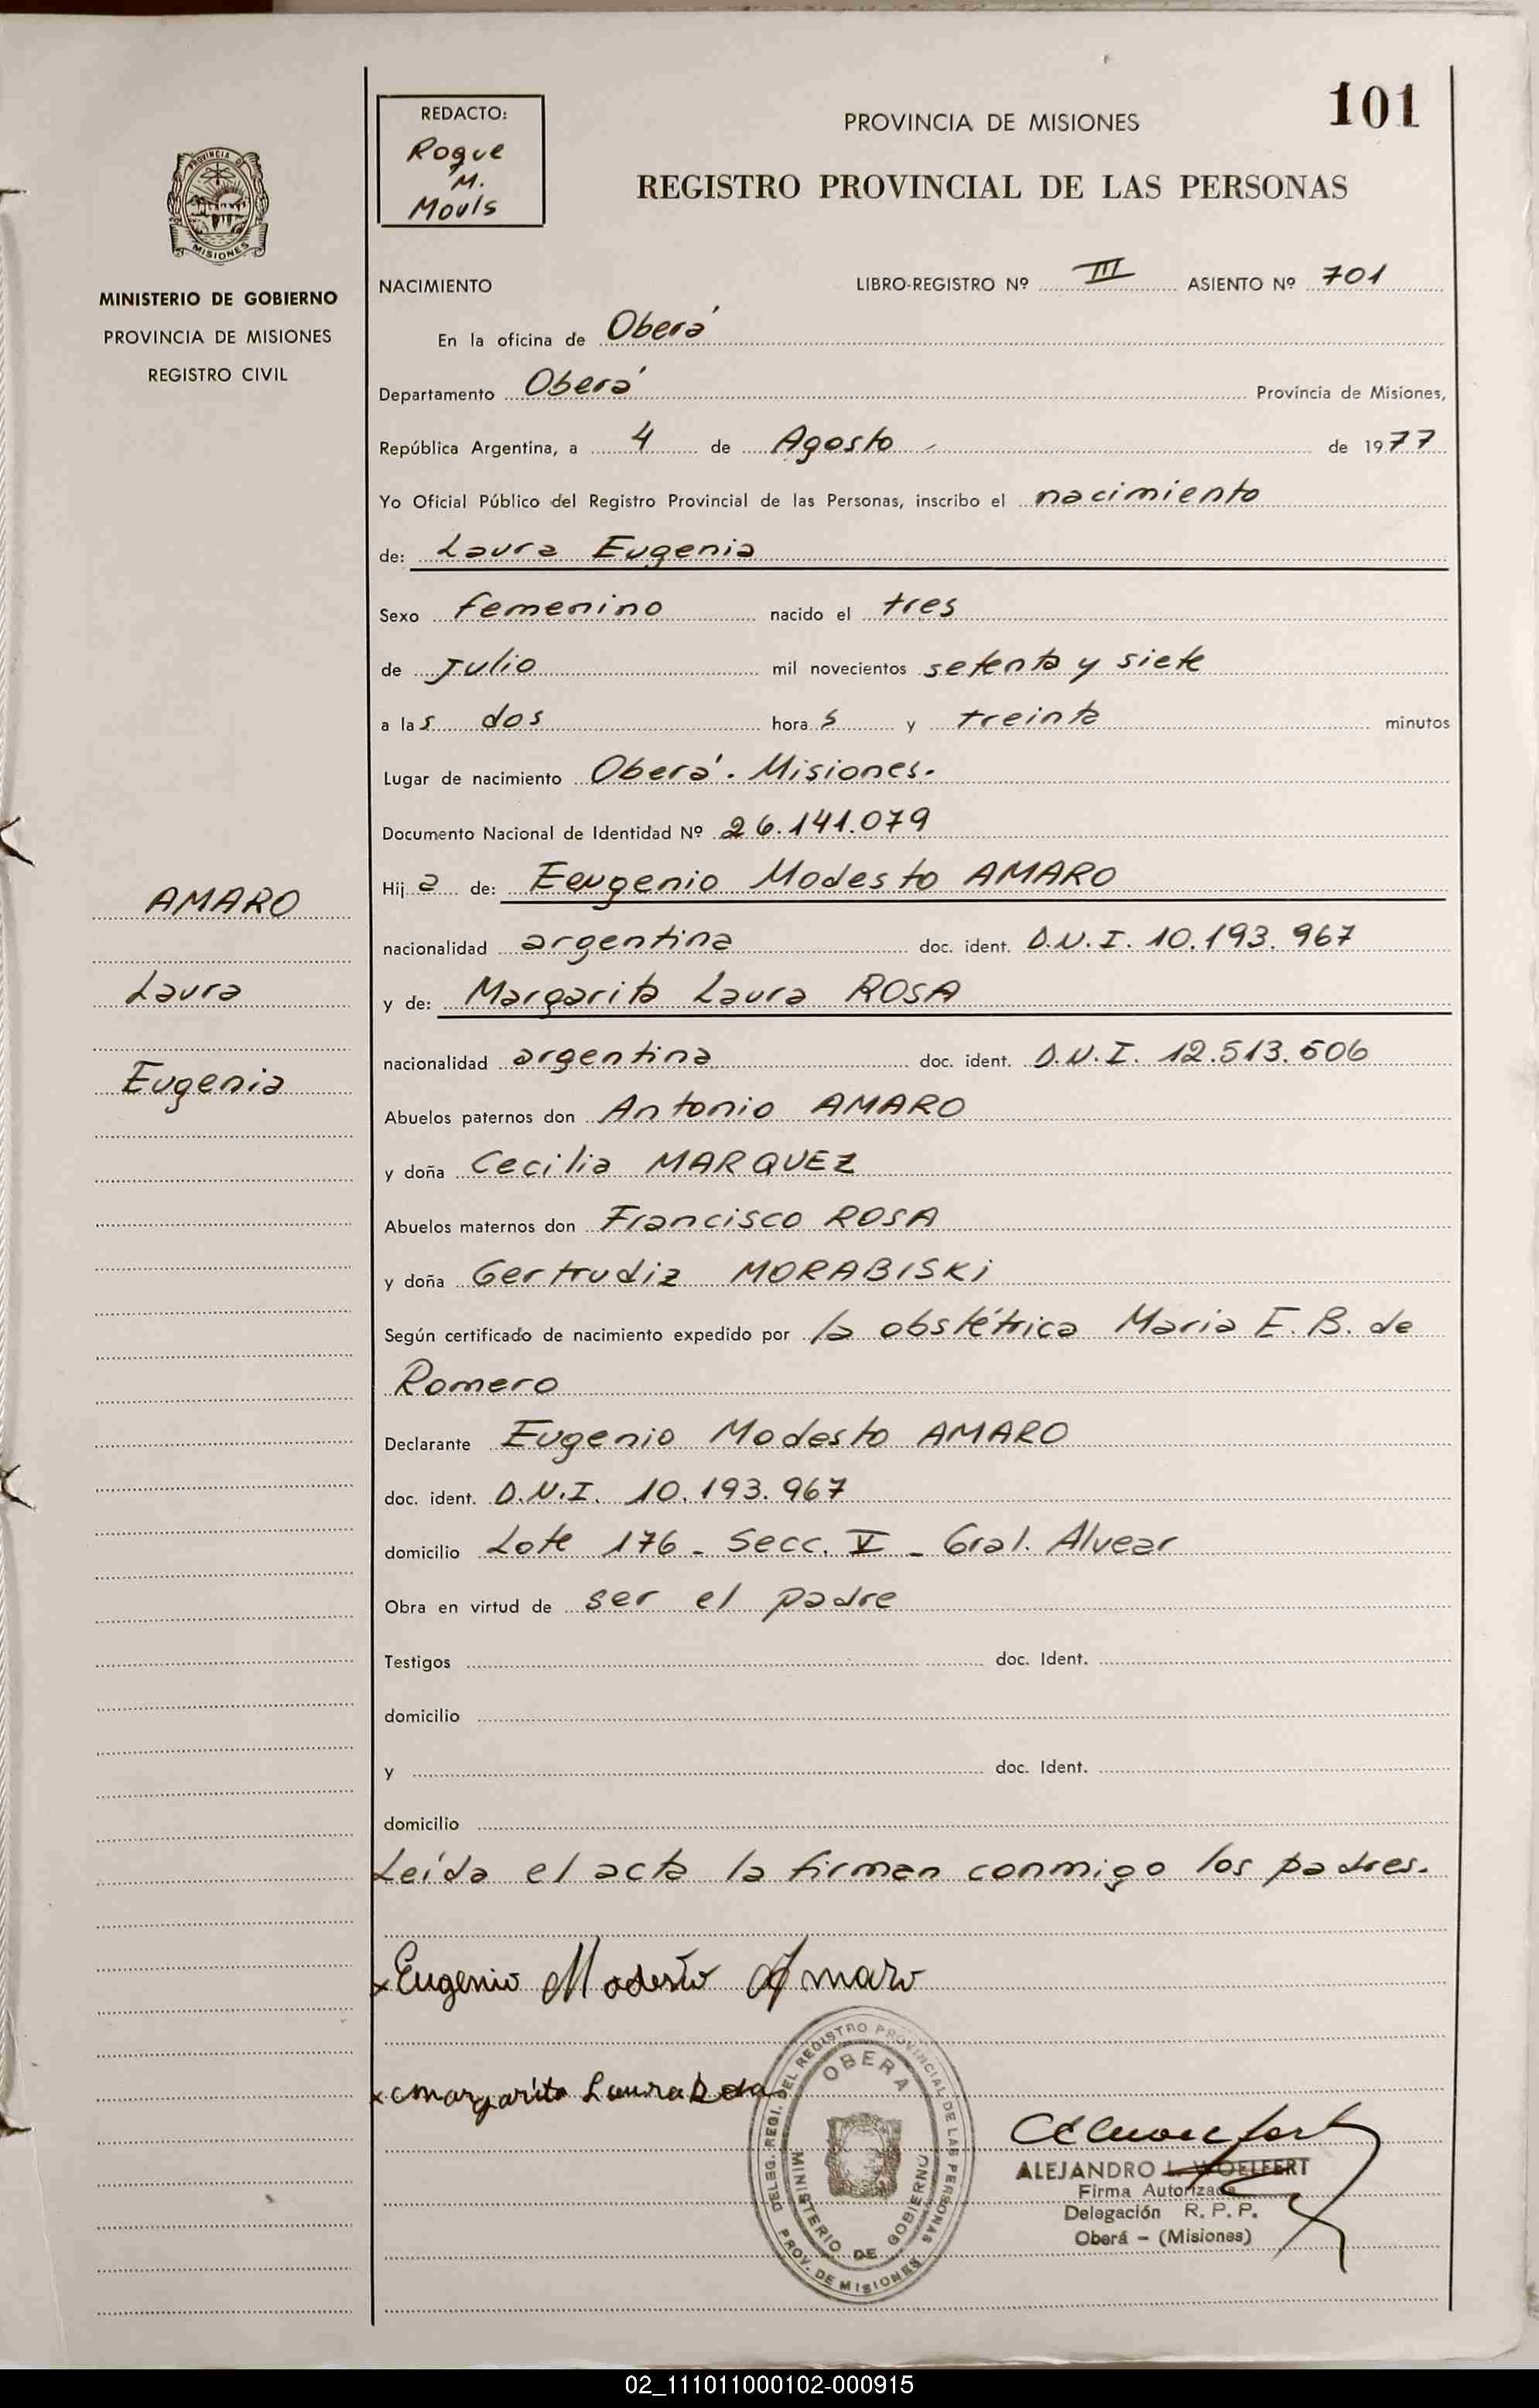 101
REDACTO:
Roque
M.
Mouls
PROVINCIA DE MISIONES
REGISTRO PROVINCIAL DE LAS PERSONAS
PROVINCIA DE
MISIONES
MINISTERIO DE GOBIERNO
PROVINCIA DE MISIONES
REGISTRO CIVIL
NACIMIENTO LIBRO-REGISTRO Nº III ASIENTO Nº 701
En la oficina de Oberá
Departamento Oberá Provincia de Misiones,
República Argentina, a 4 de Agosto de 1977
Yo Oficial Público del Registro Provincial de las Personas, inscribo el nacimiento
de: Laura Eugenia
Sexo femenino nacido el tres
de Julio mil novecientos setenta y siete
a las dos horas y treinta minutos
Lugar de nacimiento Oberá. Misiones.
Documento Nacional de Identidad Nº 26.141.079
AMARO
Laura
Eugenia
Hija de: Eeugenio Modesto AMARO
nacionalidad argentina doc. ident. D.N.I. 10.193.967
y de: Margarita Laura ROSA
nacionalidad argentina doc. ident. D.N.I. 12.513.606
Abuelos paternos don Antonio AMARO
y doña Cecilia MARQUEZ
Abuelos maternos don Francisco ROSA
y doña Gertrudiz MORABISKi
Según certificado de nacimiento expedido por la obstétrica Maria E. B. de
Romero
Declarante Eugenio Modesto AMARO
doc. ident. D.N.I. 10.193.967
domicilio Lote 176 - Secc. V - Gral. Alvear
Obra en virtud de ser el padre
Testigos doc. Ident.
domicilio
y doc. Ident.
domicilio
Leída el acta la firman conmigo los padres.
x Eugenio Modesto Amaro
x Margarita Laura Rosa
DELEG. REGI. DEL REGISTRO PROVINCIAL DE LAS PERSONAS
OBERA
MINISTERIO DE GOBIERNO
PROV. DE MISIONES
ALEJANDRO L. WOELFERT
Firma Autorizada
Delegación R. P. P.
Oberá - (Misiones)
02_111011000102-000915